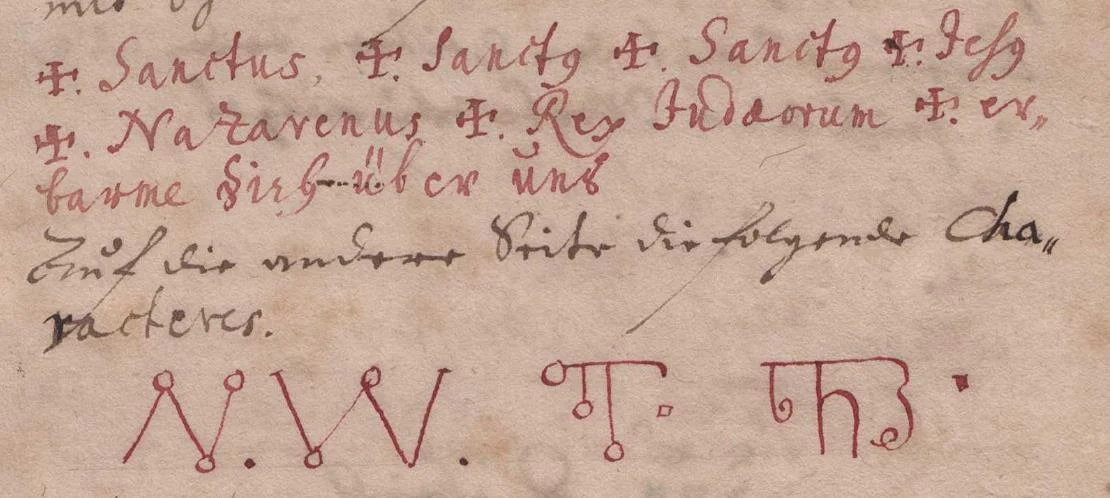 ✠. Sanctus, ✠. Sanctꝰ ✠. Sanctꝰ ✠. Jesꝰ
✠. Nazarenus ✠. Rex Judæorum ✠. er„
barme Dich über uns
Auf die andere Seite die folgende Cha„
racteres.
N. W.